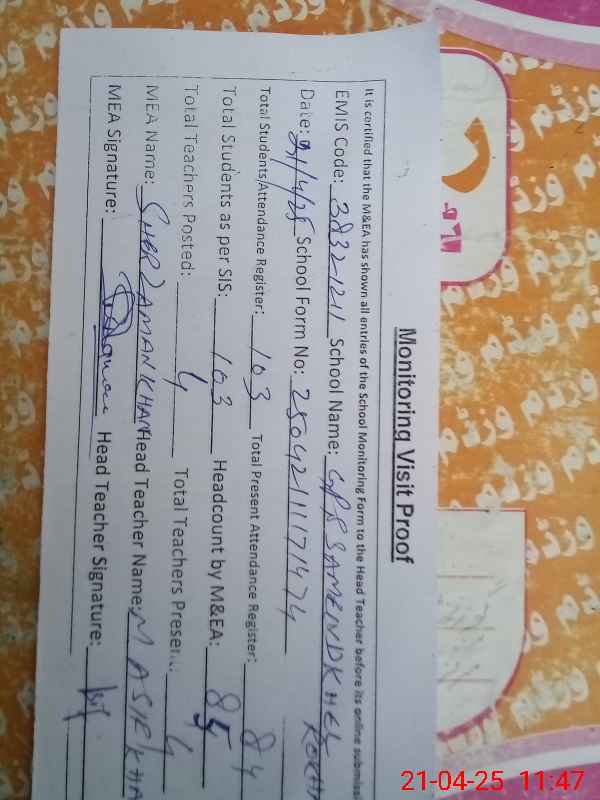 Monitoring Visit Proof
It is certified that the M&EA has shown all entries of the School Monitoring Form to the Head Teacher before its online submissi
EMIS Code: 38321211 School Name: GPS SAMANDKHEL
Date: 21/4/25 School Form No: 25042111171474
Total Students/Attendance Register: 103 Total Present Attendance Register: 84
Total Students as per SIS: 103 Headcount by M&EA: 85
Total Teachers Posted: 4 Total Teachers Present: 4
MEA Name: SHERZAMAN KHAN Head Teacher Name: NASIR KHA
MEA Signature: Head Teacher Signature:
21-04-25 11:47